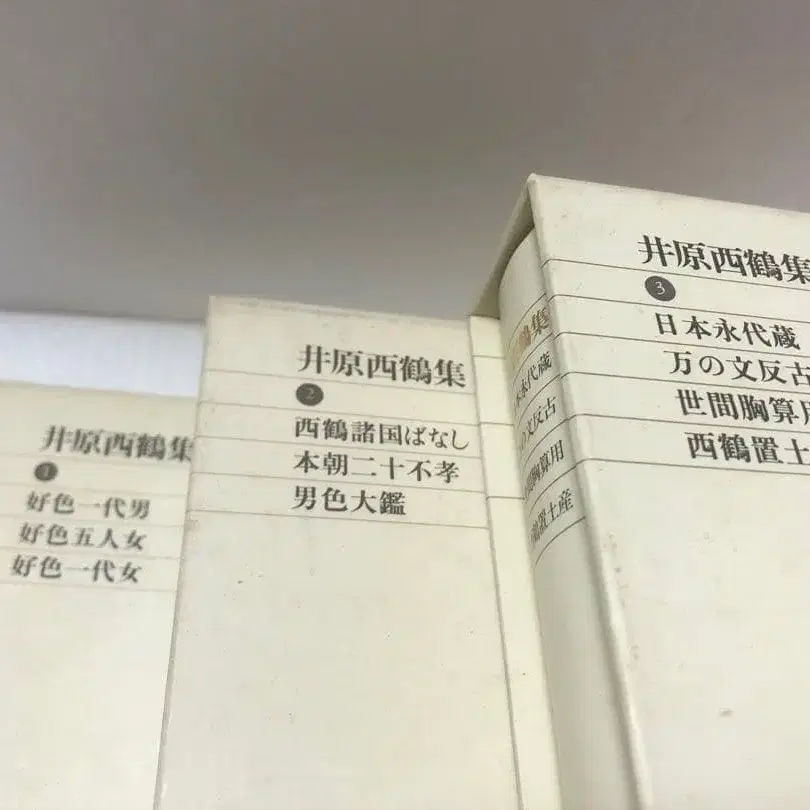 井原西鶴集
1
好色一代男
好色五人女
好色一代女
井原西鶴集
2
西鶴諸国ばなし
本朝二十不孝
男色大鑑
鶴集
永代蔵
の文反古
間胸算用
置土産
井原西鶴集
3
日本永代蔵
万の文反古
世間胸算用
西鶴置土